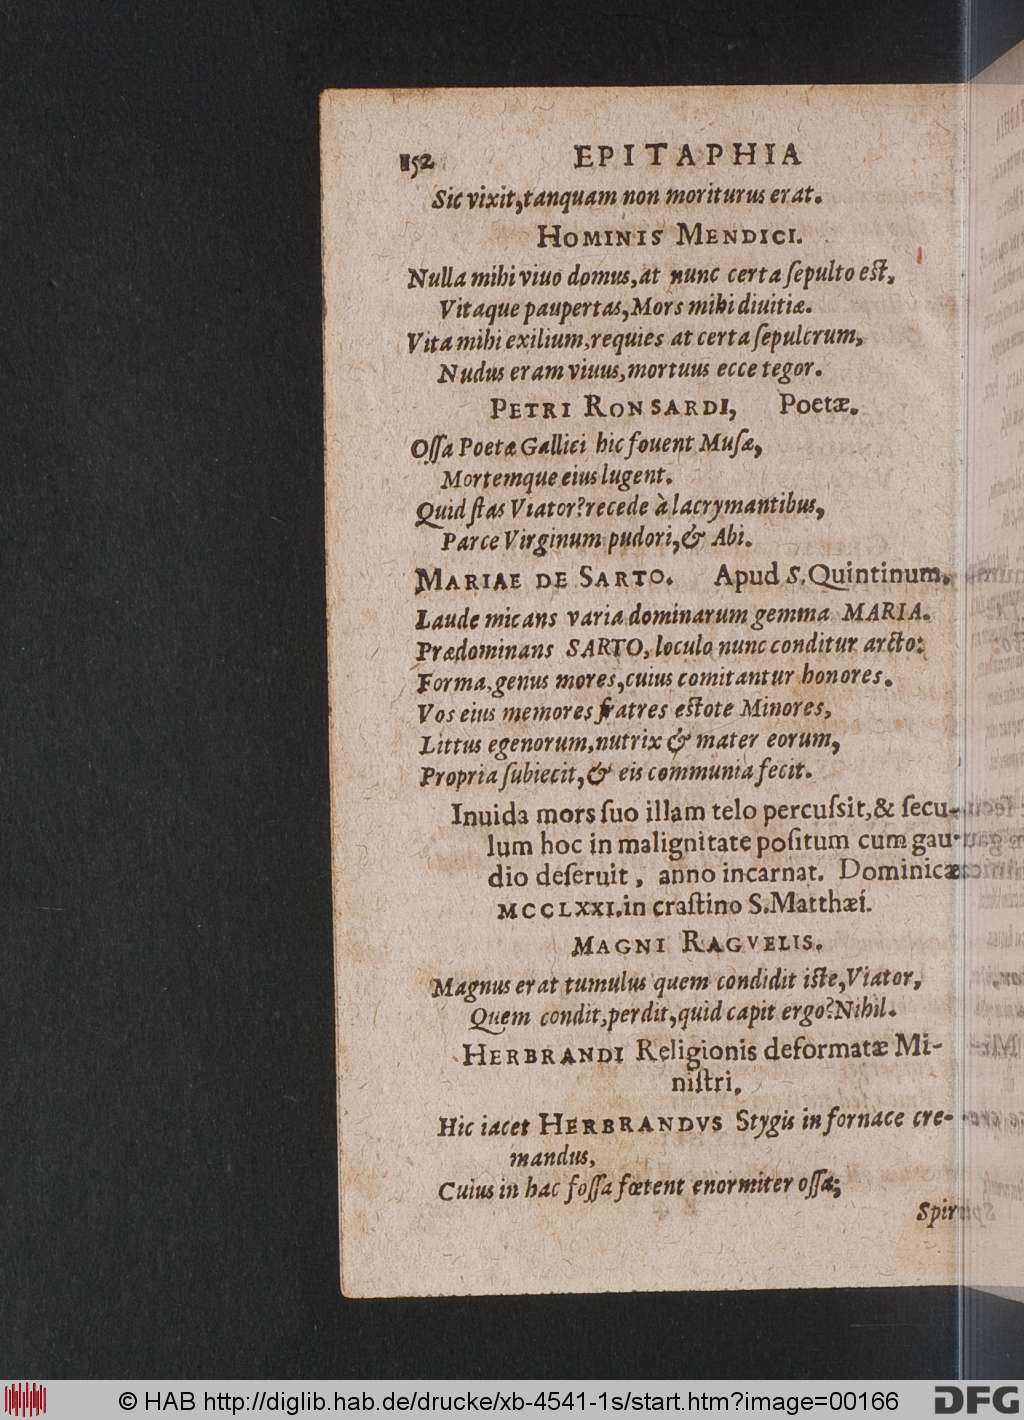 152 EPITAPHIA
Sic vixit, tanquam non moriturus erat.
HOMINIS MENDICI.
Nulla mihi viuo domus, at nunc certa ſepulto eſt,
Vitaque paupertas, Mors mihi diuitiæ.
Vita mihi exilium, requies at certa ſepulcrum,
Nudus eram viuus, mortuus ecce tegor.
PETRI RONSARDI, Poetæ.
Oſſa Poetæ Gallici hic fouent Muſæ,
Mortemque eius lugent.
Quid ſtas Viator? recede à lacrymantibus,
Parce Virginum pudori, & Abi.
MARIAE DE SARTO. Apud S. Quintinum.
Laude micans varia dominarum gemma MARIA.
Prædominans SARTO, loculo nunc conditur arcto:
Forma, genus mores, cuius comitantur honores.
Vos eius memores fratres eſtote Minores,
Littus egenorum, nutrix & mater eorum,
Propria ſubiecit, & eis communia fecit.
Inuida mors ſuo illam telo percuſsit, & ſecu-
lum hoc in malignitate poſitum cum gau-
dio deſeruit, anno incarnat. Dominicæ
MCCLXXI. in craſtino S. Matthæi.
MAGNI RAGVELIS.
Magnus erat tumulus quem condidit iſte, Viator,
Quem condit, perdit, quid capit ergo? Nihil.
HERBRANDI Religionis deformatæ Mi-
niſtri.
Hic iacet HERBRANDVS Stygis in fornace cre-
mandus,
Cuius in hac foſſa fœtent enormiter oſſa;
© HAB http://diglib.hab.de/drucke/xb-4541-1s/start.htm?image=00166
DFG